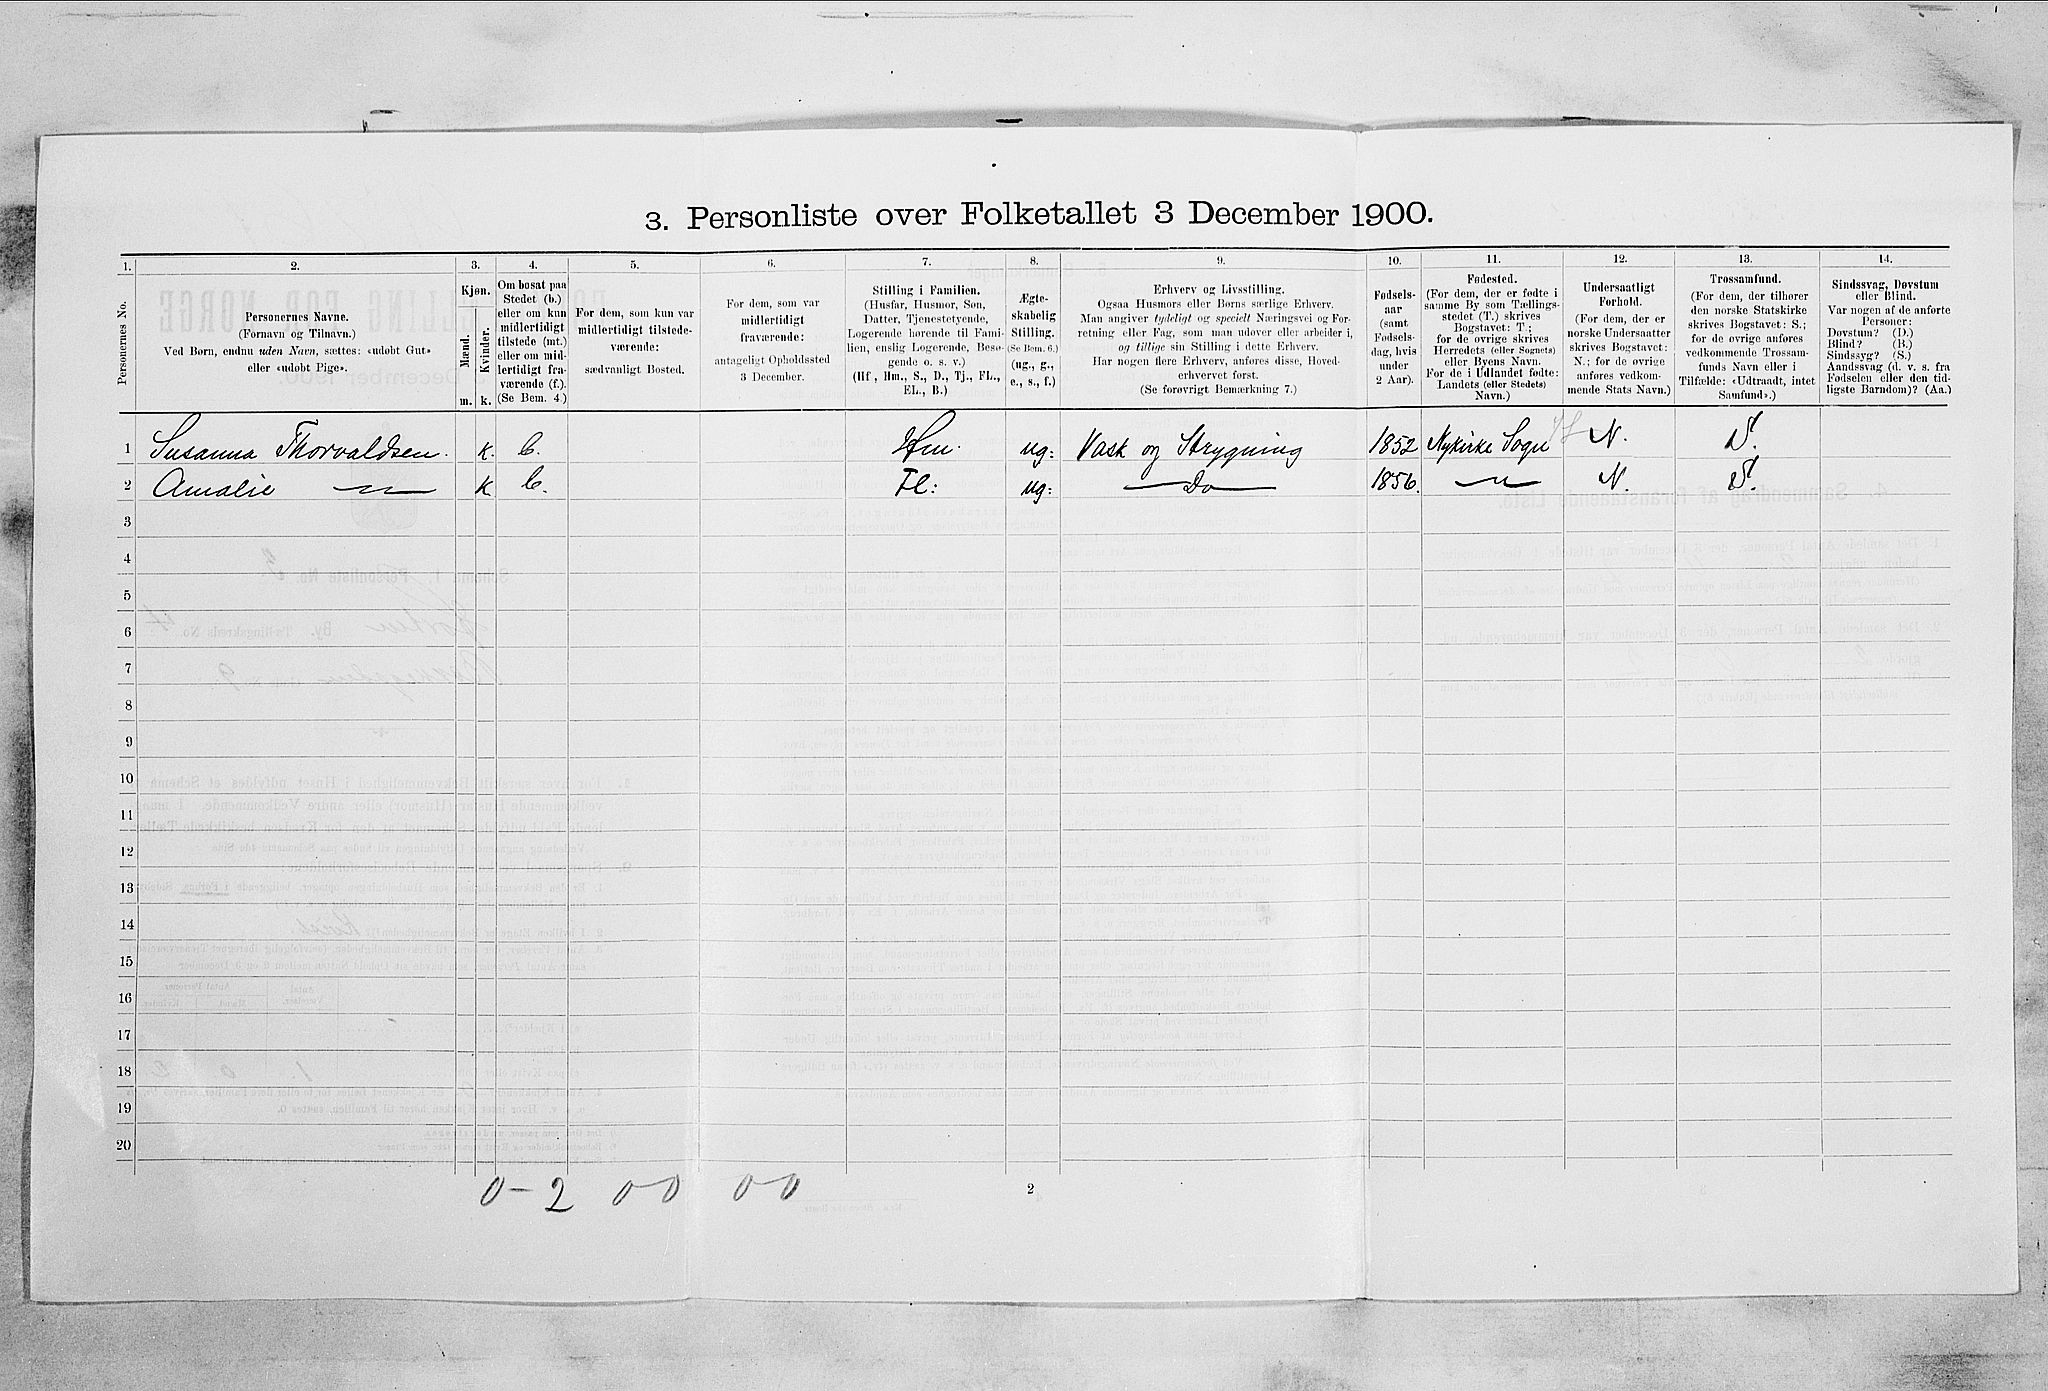 3. Personliste over Folketallet 3 December 1900.
1. 2. 3. 4. 5. 6. 7. 8. 9. 10. 11. 12. 13. 14.
Personernes No.
Personernes Navne.
(Fornavn og Tilnavn.)
Ved Børn, endnu uden Navn, sættes: «udøbt Gut»
eller «udøbt Pige».
Kjøn.
Mænd.
Kvinder.
m. k.
Om bosat paa
Stedet (b.)
eller om kun
midlertidigt
tilstede (mt.)
eller om mid-
lertidigt fra-
værende (f.).
(Se Bem. 4.)
For dem, som kun var
midlertidigt tilstede-
værende:
sædvanligt Bosted.
For dem, som var
midlertidigt
fraværende:
antageligt Opholdssted
3 December.
Stilling i Familien.
(Husfar, Husmor, Søn,
Datter, Tjenestetyende,
Logerende hørende til Fami-
lien, enslig Logerende, Besø-
gende o. s. v.)
(Hf , Hm., S., D., Tj., FL.,
EL., B.)
Ægte-
skabelig
Stilling.
(Se Bem. 6.)
(ug., g.,
e., s., f.)
Erhverv og Livsstilling.
Ogsaa Husmors eller Børns særlige Erhverv.
Man angiver tydeligt og specielt Næringsvei og For-
retning eller Fag, som man udover eller arbeider i,
og tillige sin Stilling i dette Erhverv.
Har nogen flere Erhverv, anføres disse, Hoved-
erhvervet først.
(Se forøvrigt Bemærkning 7.)
Fødsels-
aar
(samt
Fødsels-
dag, hvis
under
2 Aar).
Fødested.
(For dem, der er fødte i
samme By som Tællings-
stedet (T.) skrives
Bogstavet: T.;
for de øvrige skrives
Herredets (eller Sognets)
eller Byens Navn.
For de i Udlandet fødte:
Landets (eller Stedets)
Navn.)
Undersaatligt
Forhold.
(For dem, der er
norske Undersaatter
skrives Bogstavet:
N.; for de øvrige
anføres vedkom-
mende Stats Navn.)
Trossamfund.
(For dem, der tilhører
den norske Statskirke
skrives Bogstavet: S.;
for de øvrige anføres
vedkommende Trossam-
funds Navn eller i
Tilfælde: «Udtraadt, intet
Samfund».)
Sindssvag, Døvstum
eller Blind.
Var nogen af de anførte
Personer:
Døvstum? (D.)
Blind? (B.)
Sindssyg? (S.)
Aandssvag (d. v. s. fra
Fødselen eller den tid-
ligste Barndom)? (Aa.)
1 Susanna Thorvaldsen. K. b. Hm. ug: Vask og Strygning 1852 Nykirke Sogn N. S.
2 Amalie —"— K b. Fl: ug: — Do — 1856. —"— N. S.
3
4
5
6
7
8
9
10
11
12
13
14
15
16
17
18
19
20
0-2 00 00
2